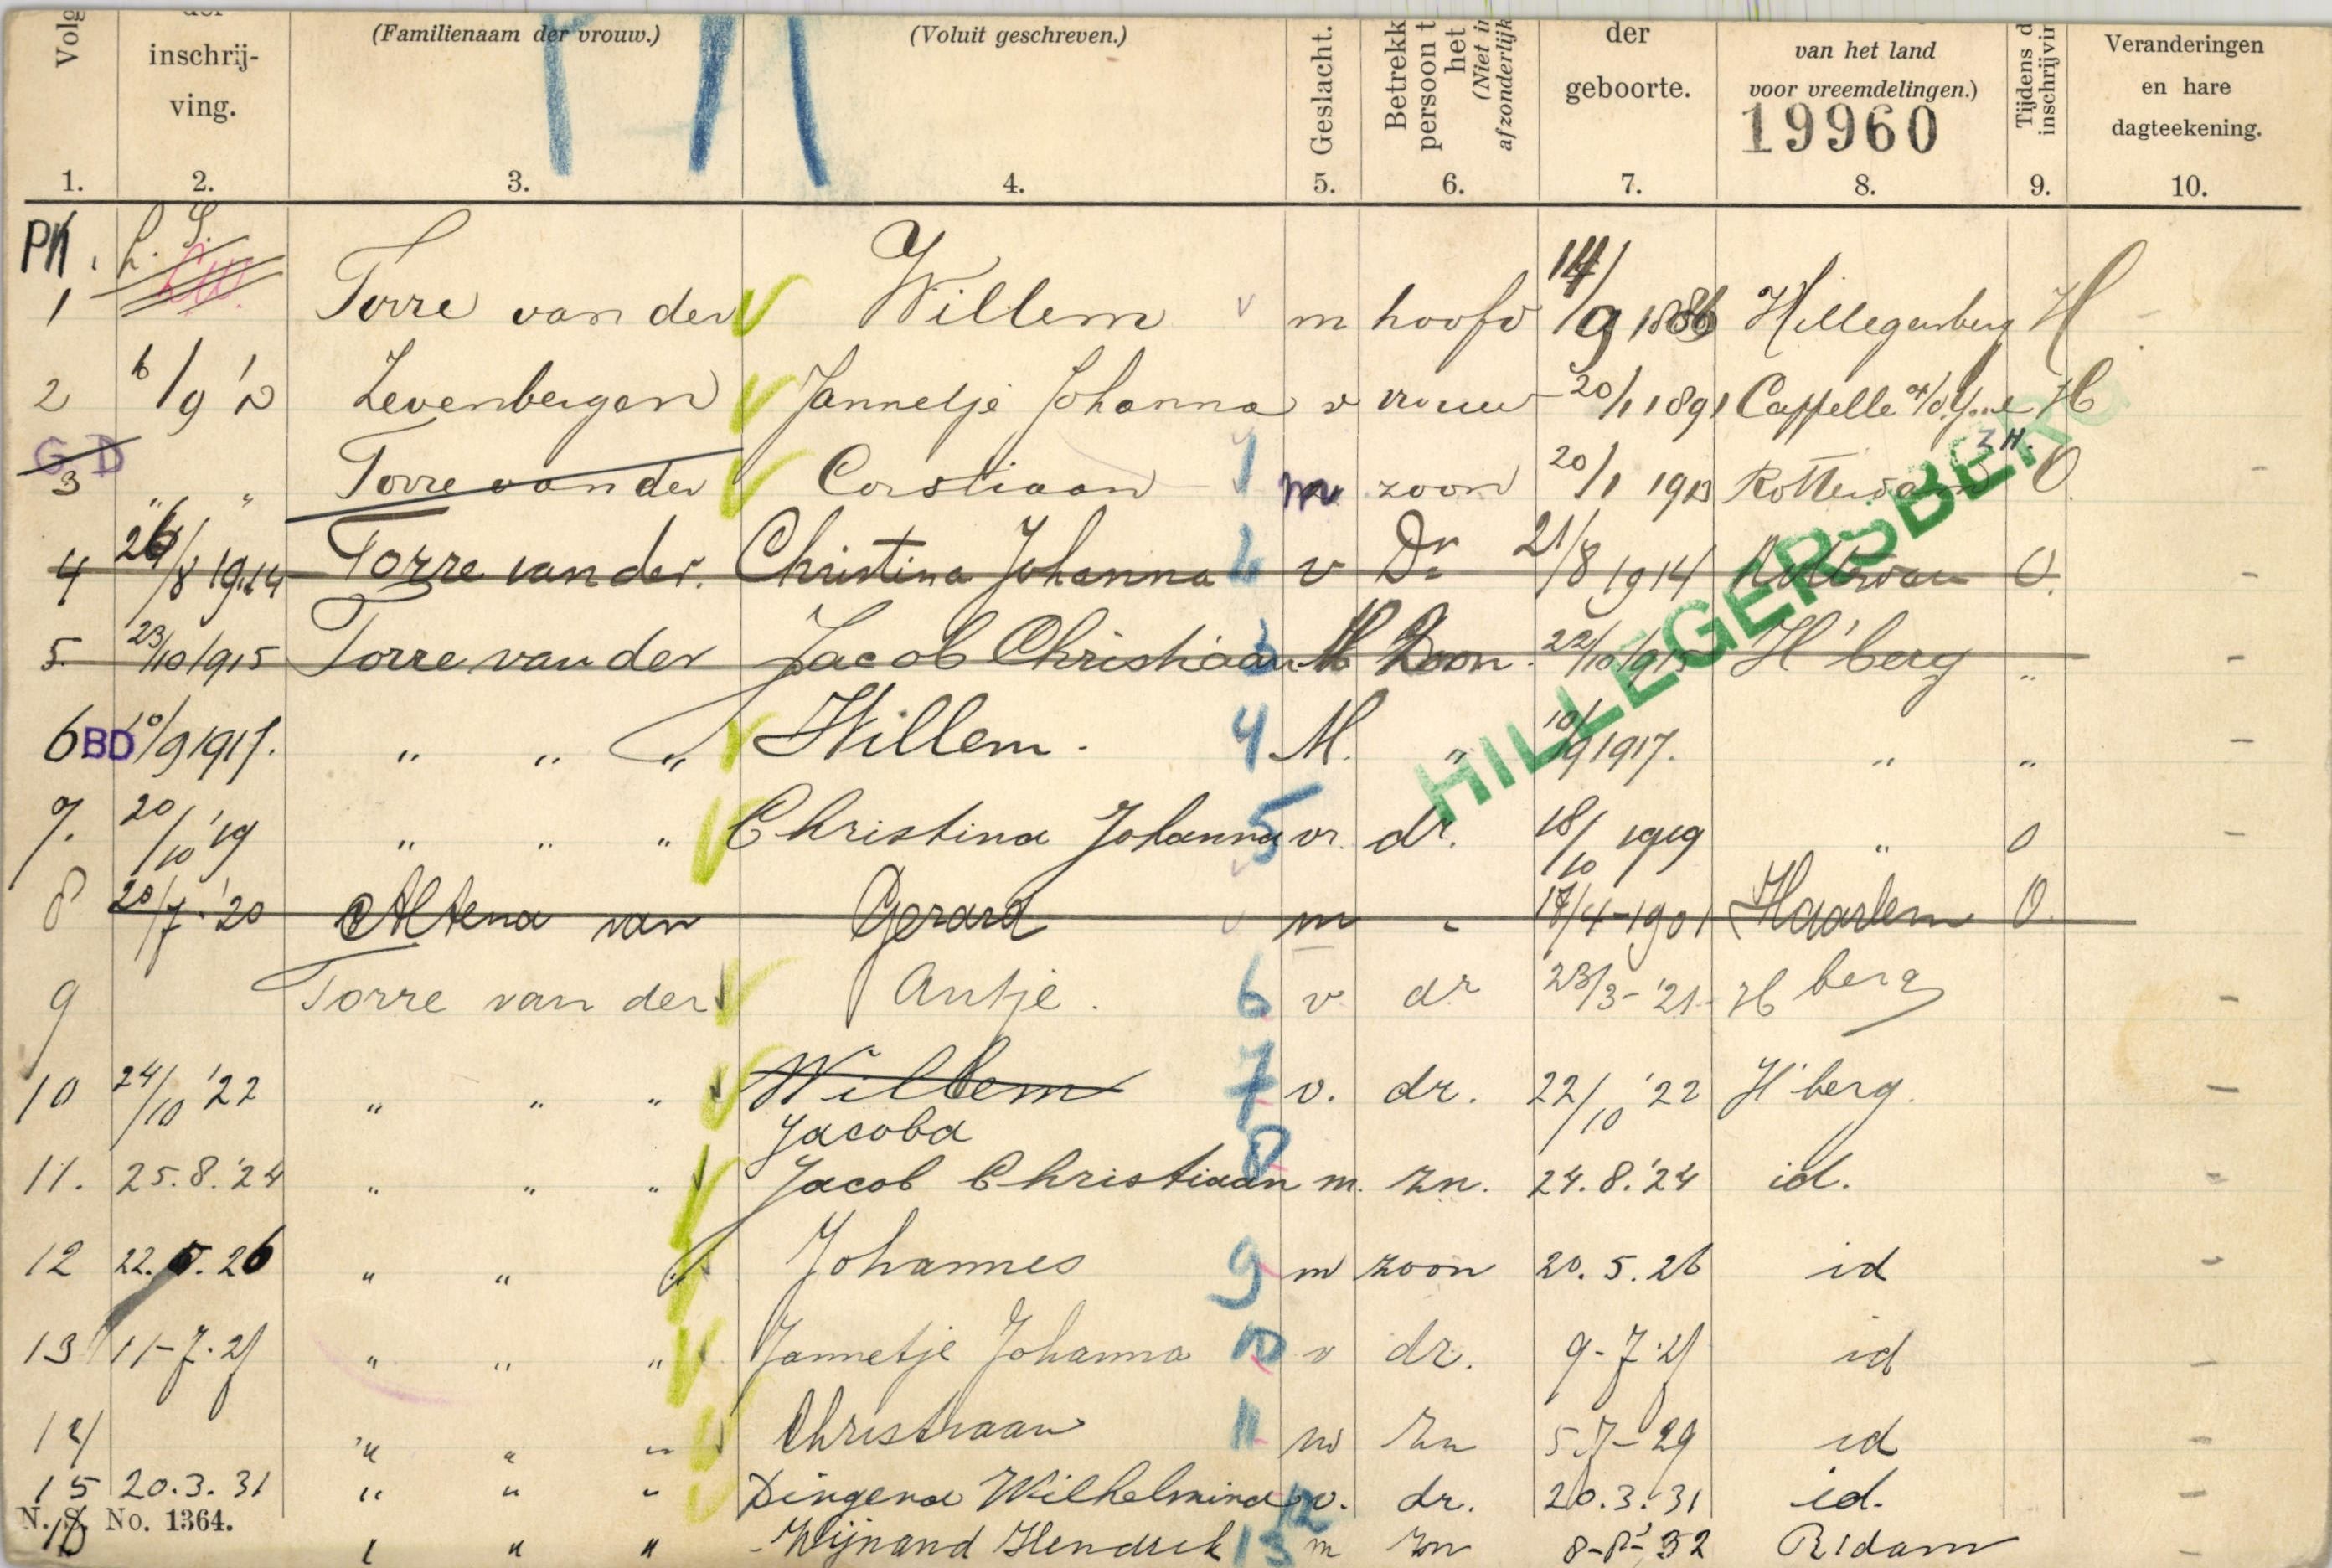 Volg der inschrij- ving. (Familienaam der vrouw.) (Voluit geschreven.) Geslacht. Betrekk persoon t het (Niet in afzonderlijk der geboorte. van het land voor vreemdelingen.) Tijdens d inschrijvin Veranderingen en hare dagteekening.
19960
1. 2. 3. 4. 5. 6. 7. 8. 9. 10.
PK
1 Torre van der Willem m hoofd 14/9 1886 Hillegersberg H
2 6/9 '12 Zevenbergen Jannetje Johanna v vrouw 20/1 1891 Capelle a/d IJssel H
GD
3 " " Torre van der Corstiaan 1 m zoon 20/1 1913 Rotterdam O
4 26/8 1914 Torre van der. Christina Johanna 2 v Dr 21/8 1914 Rotterdam O.
5. 23/10 1915 Torre van der Jacob Christiaan 3 M Zoon 22/10 1915 H'berg "
HILLEGERSBERG
6 BD 10/9 1917. " " " Willem. 4 M. " 10/9 1917. " "
7. 20/10 '19 " " " Christina Johanna 5 vr. dr. 18/10 1919 " O
8 20/7. '20 Altena van Gerard m - 17/4-1901 Haarlem O.
9 Torre van der Antje. 6 v dr 23/3-'21- H berg
10 24/10 '22 " " " Willem 7 v. dr. 22/10 '22 H'berg.
Jacoba
11. 25.8.'24 " " " Jacob Christiaan 8 m. zn. 24.8.'24 id.
12 22.5.26 " " " Johannes 9 m zoon 20.5.26 id
13 11-7.27 " " " Jannetje Johanna 10 v dr. 9-7.27 id
14 " " " Christiaan 11 m zn 5.7-29 id
15 20.3.31 " " " Dingena Wilhelmina 12 v. dr. 20.3.31 id.
N. S. No. 1364.
16 " " " Wijnand Hendrik 13 m zn 8-8-'32 R'dam